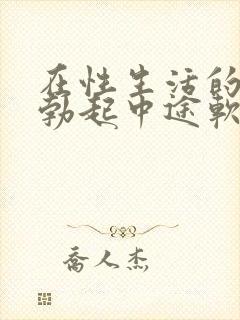 在性生活的
勃起中途軟
喬人杰